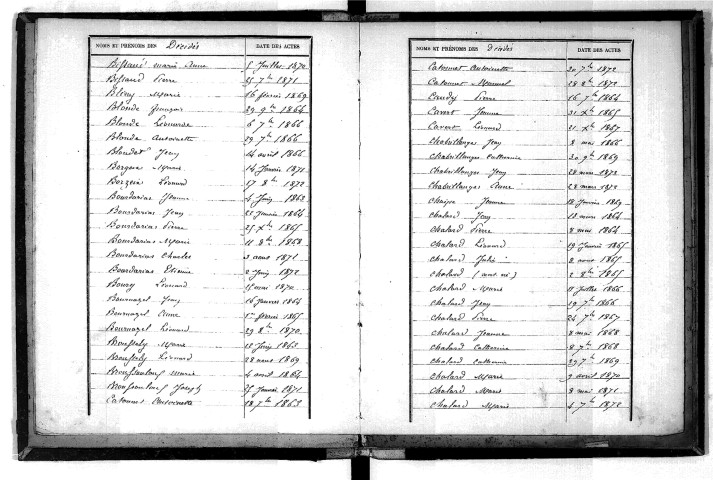 NOMS ET PRÉNOMS DES Décédés DATE DES ACTES
Marie Anne 5 Juillet 1870
Pierre 25 7bre 1871
Marie 16 février 1869
Blonde François 29 9bre 1864
Blonde Léonarde 6 7bre 1866
Blonde Antoinette 29 7bre 1866
Blondet Jeny 4 avril 1866
Borgeix Marie 14 Janvier 1871
Borgeix Léonard 17 8bre 1872
Bourdarias Jeanne 4 Juin 1863
Bourdarias Jeny 22 Janvier 1864
Bourdarias Pierre 25 Xbre 1865
Bourdarias Marie 11 8bre 1868
Bourdarias Charles 3 avril 1871
Bourdarias Etienne 2 Juin 1872
Boury Léonard 15 mai 1870
Bournazel Jeny 16 Janvier 1864
Bournazel Anne 1er février 1865
Bournazel Léonard 29 8bre 1870
Marie 12 Juin 1863
Léonard 28 mars 1869
Marie 4 avril 1864
Joseph 25 Janvier 1871
Catonnet Antoinette 18 7bre 1863
NOMS ET PRÉNOMS DES Décédés DATE DES ACTES
Catonnet Antoinette 20 7bre 1872
Catonnet 28 8bre 1872
Pierre 16 7bre 1864
Cavert Jeanne 31 Xbre 1865
Cavert Léonard 21 Xbre 1867
Chabrillanges Jeny 8 mai 1866
Chabrillanges Catherine 30 9bre 1869
Chabrillanges Jeny 28 mars 1872
Chabrillanges Anne 28 mars 1872
Chaize Jeanne 18 Janvier 1869
Chalard Jeny 18 mars 1864
Chalard Pierre 8 mai 1864
Chalard Léonard 19 Janvier 1865
Chalard Julie 8 avril 1865
Chalard (mort né) 2 8bre 1865
Chalard Marie 11 Juillet 1866
Chalard Jeny 19 7bre 1866
Chalard Pierre 24 7bre 1867
Chalard Jeanne 8 mai 1868
Chalard Catherine 8 7bre 1868
Chalard Catherine 29 7bre 1869
Chalard Marie 9 avril 1870
Chalard Marie 8 mai 1871
Chalard Marie 4 7bre 1872